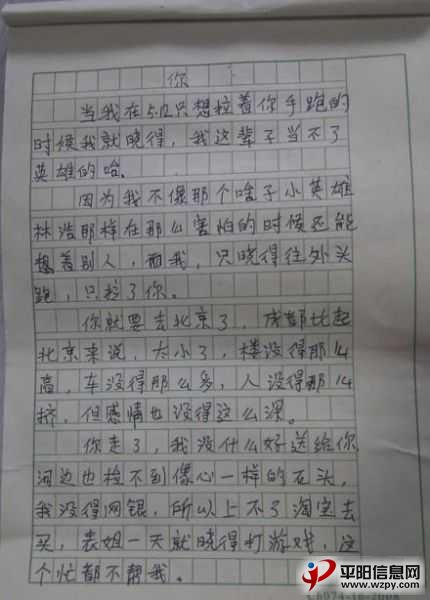 你
当我在5.12只想拉着你手跑的
时候我就晓得，我这辈子当不了
英雄的哈。
因为我不像那个啥子小英雄
林浩那样在那么害怕的时候还能
想着别人，而我，只晓得往外头
跑，只拉了你。
你就要去北京了，成都比起
北京来说，太小了，楼没得那么
高，车没得那么多，人没得那么
挤，但感情也没得这么深。
你走了，我没什么好送给你
河边也捡不到像心一样的石头，
我没得网银，所以上不了淘宝去
买，表姐一天就晓得打游戏，这
个忙都不帮我。
平阳信息网
www.wzpy.com